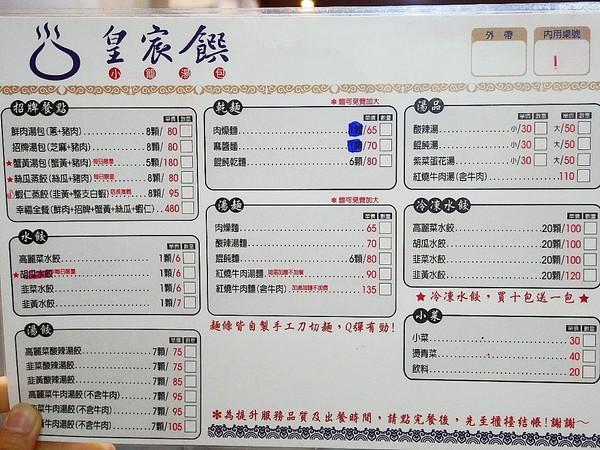 皇宸饌
小籠湯包
外帶
內用桌號
1
招牌餐點
單價 數量
鮮肉湯包(蔥+豬肉) 8顆/ 80
招牌湯包(芝麻+豬肉) 8顆/ 80
★蟹黃湯包(蟹黃+豬肉)每日限量 5顆/180
★絲瓜蒸餃(絲瓜+豬肉)每日限量 8顆/ 80
蝦仁蒸餃(韭黃+整支白蝦) 8顆/ 95
幸福全餐(鮮肉+招牌+蟹黃+絲瓜+蝦仁) 480
水餃
單價 數量
高麗菜水餃 1顆/6
★胡瓜水餃 每日限量 1顆/6
韭菜水餃 1顆/6
韭黃水餃 1顆/7
湯餃
單價 數量
高麗菜酸辣湯餃 7顆/ 75
韭菜酸辣湯餃 7顆/ 75
韭黃酸辣湯餃 7顆/ 85
高麗菜牛肉湯餃(不含牛肉) 7顆/ 95
菜牛肉湯餃(不含牛肉) 7顆/ 95
牛肉湯餃(不含牛肉) 7顆/105
＊麵可免費加大
乾麵
單價 數量
肉燥麵 /65
麻醬麵 /70
餛飩乾麵 6顆/80
＊麵可免費加大
湯麵
單價 數量
肉燥麵 65
酸辣湯麵 70
餛飩麵 6顆/80
紅燒牛肉湯麵 加湯加麵不加價 90
紅燒牛肉麵(含牛肉) 加湯加麵不加價 135
麵條皆自製手工刀切麵，Q彈有勁!
湯品
單價 數量 單價 數量
酸辣湯 小/30 大/50
餛飩湯 小/30 大/50
紫菜蛋花湯 小/30 大/50
紅燒牛肉湯(含牛肉) 110
冷凍水餃
單價 數量
高麗菜水餃 20顆/100
胡瓜水餃 20顆/100
韭菜水餃 20顆/100
韭黃水餃 20顆/120
★冷凍水餃，買十包送一包★
小菜
單價 數量
小菜 30
燙青菜 40
飲料 20
＊為提升服務品質及出餐時間，請點完餐後，先至櫃檯結帳!謝謝~